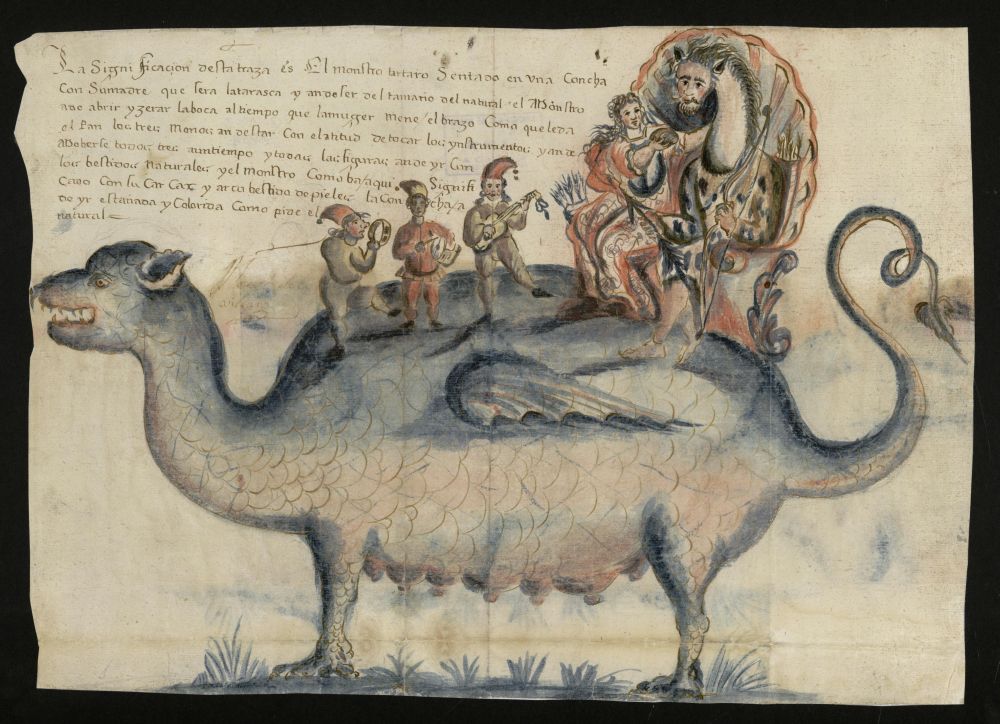 La Significacion desta traza es El monstro tartaro Sentado en vna Concha
Con Sumadre que sera latarasca y an de ser del tamaño del natural el Monstro
a de abrir y zerar la boca altiempo que lamuger mene el brazo Como que leda
el Pan los tres monos an destar Con elatitud de tocar los ynstrumentos y an de
Moberse todos tres auntiempo y todas las figuras an de yr Con
los bestidos naturales y el monstro Como ba aqui Signifi
Cado Con su Car Cax y arco bestido de pieles la Concha a
de yr estañada y Colorida Como pide el
natural